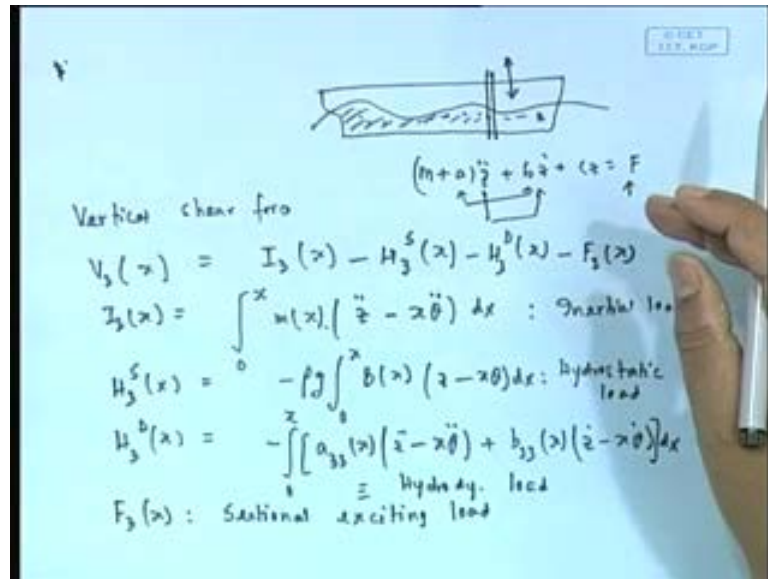 © CET
I.I.T. KGP
(m+a)z̈ + bż + cz = F
Vertical shear force
V₃(x) = I₃(x) − H₃ˢ(x) − H₃ᴰ(x) − F₃(x)
I₃(x) = ∫₀ˣ m(x).(z̈ − xθ̈) dx : Inertial loa
H₃ˢ(x) = −ρg∫₀ˣ B(x) (z − xθ)dx : Hydrostatic
load
H₃ᴰ(x) = −∫₀ˣ[a₃₃(x)(z̈ − xθ̈) + b₃₃(x)(ż − xθ̇)]dx
≡ Hydrody. load
F₃(x) : Sectional exciting load